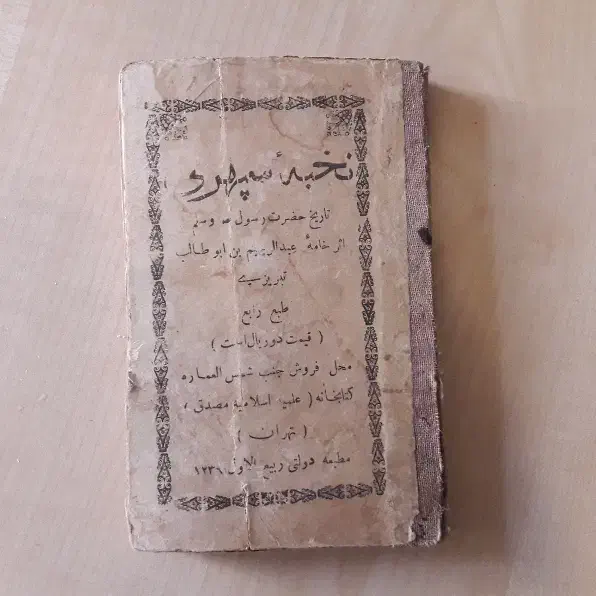 نخبهٔ سپهری
تاریخ حضرت رسول ص و سلم
اثر خامهٔ عبدالرحیم بن ابو طالب
تبریزی
طبع رابع
( قیمت دو ریال است )
محل فروش جنب شمس العماره
کتابخانه ( علمیه اسلامیه مصدقی )
( تهران )
مطبعه دولتی ربیع الاول ۱۳۳۶